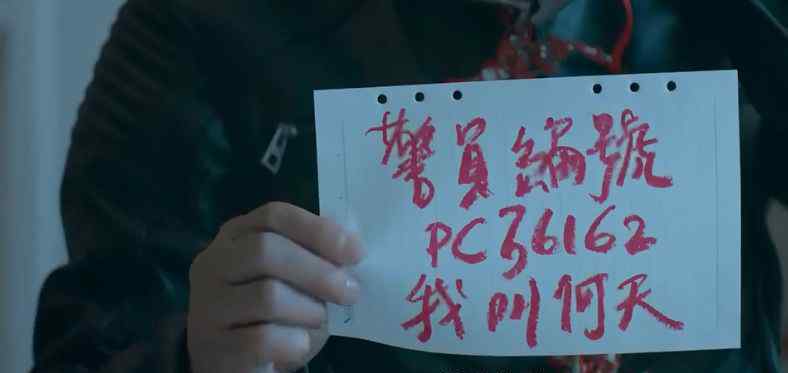 警員編號
PC36162
我叫何天